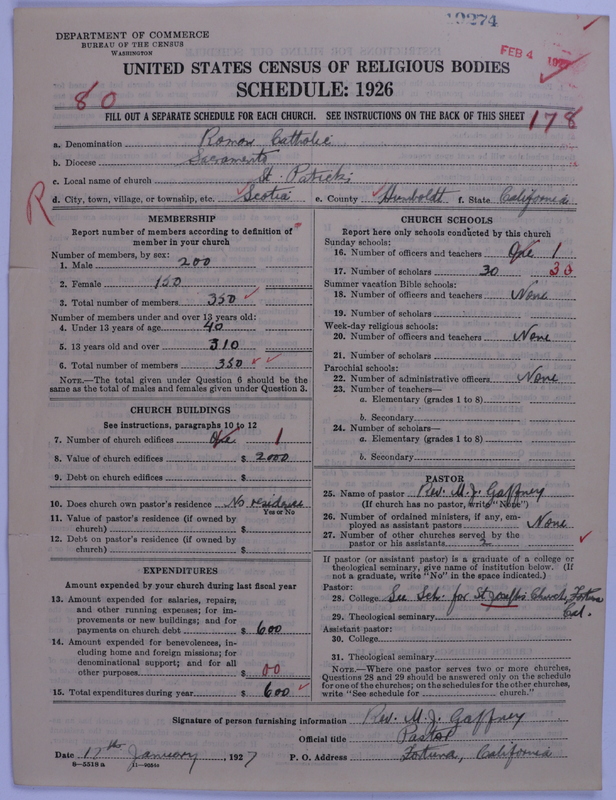 19274
DEPARTMENT OF COMMERCE
BUREAU OF THE CENSUS
WASHINGTON
FEB 4
UNITED STATES CENSUS OF RELIGIOUS BODIES
SCHEDULE: 1926
80
FILL OUT A SEPARATE SCHEDULE FOR EACH CHURCH. SEE INSTRUCTIONS ON THE BACK OF THIS SHEET
178
a. Denomination Roman Catholic
b. Diocese Sacramento
c. Local name of church St. Patricks
R
d. City, town, village, or township, etc. Scotia e. County Humboldt f. State California
MEMBERSHIP
Report number of members according to definition of member in your church
Number of members, by sex:
1. Male 200
2. Female 150
3. Total number of members 350
Number of members under and over 13 years old:
4. Under 13 years of age 40
5. 13 years old and over 310
6. Total number of members 350
NOTE.—The total given under Question 6 should be the
same as the total of males and females given under Question 3.
CHURCH BUILDINGS
See instructions, paragraphs 10 to 12
7. Number of church edifices One 1
8. Value of church edifices $ 2000
9. Debt on church edifices $
10. Does church own pastor's residence No residence
Yes or No
11. Value of pastor's residence (if owned by
church) $
12. Debt on pastor's residence (if owned by
church) $
EXPENDITURES
Amount expended by your church during last fiscal year
13. Amount expended for salaries, repairs,
and other running expenses; for im-
provements or new buildings; and for
payments on church debt $ 600
14. Amount expended for benevolences, in-
cluding home and foreign missions; for
denominational support; and for all
other purposes $ 00
15. Total expenditures during year $ 600
CHURCH SCHOOLS
Report here only schools conducted by this church
Sunday schools:
16. Number of officers and teachers One 1
17. Number of scholars 30 30
Summer vacation Bible schools:
18. Number of officers and teachers None
19. Number of scholars
Week-day religious schools:
20. Number of officers and teachers None
21. Number of scholars
Parochial schools:
22. Number of administrative officers None
23. Number of teachers—
a. Elementary (grades 1 to 8)
b. Secondary
24. Number of scholars—
a. Elementary (grades 1 to 8)
b. Secondary
PASTOR
25. Name of pastor Rev. M. J. Gaffney
(If church has no pastor, write "None")
26. Number of ordained ministers, if any, em-
ployed as assistant pastors None
27. Number of other churches served by the
pastor or his assistants 2
If pastor (or assistant pastor) is a graduate of a college or
theological seminary, give name of institution below. (If
not a graduate, write "No" in the space indicated.)
Pastor:
28. College See Sch. for St Josephs Church, Fortuna
Cal.
29. Theological seminary
Assistant pastor:
30. College
31. Theological seminary
NOTE.—Where one pastor serves two or more churches,
Questions 28 and 29 should be answered only on the schedule
for one of the churches; on the schedules for the other churches,
write "See schedule for church."
Signature of person furnishing information Rev. M. J. Gaffney
Official title Pastor
Date 17th January, 1927 P. O. Address Fortuna, California
8—5518 a